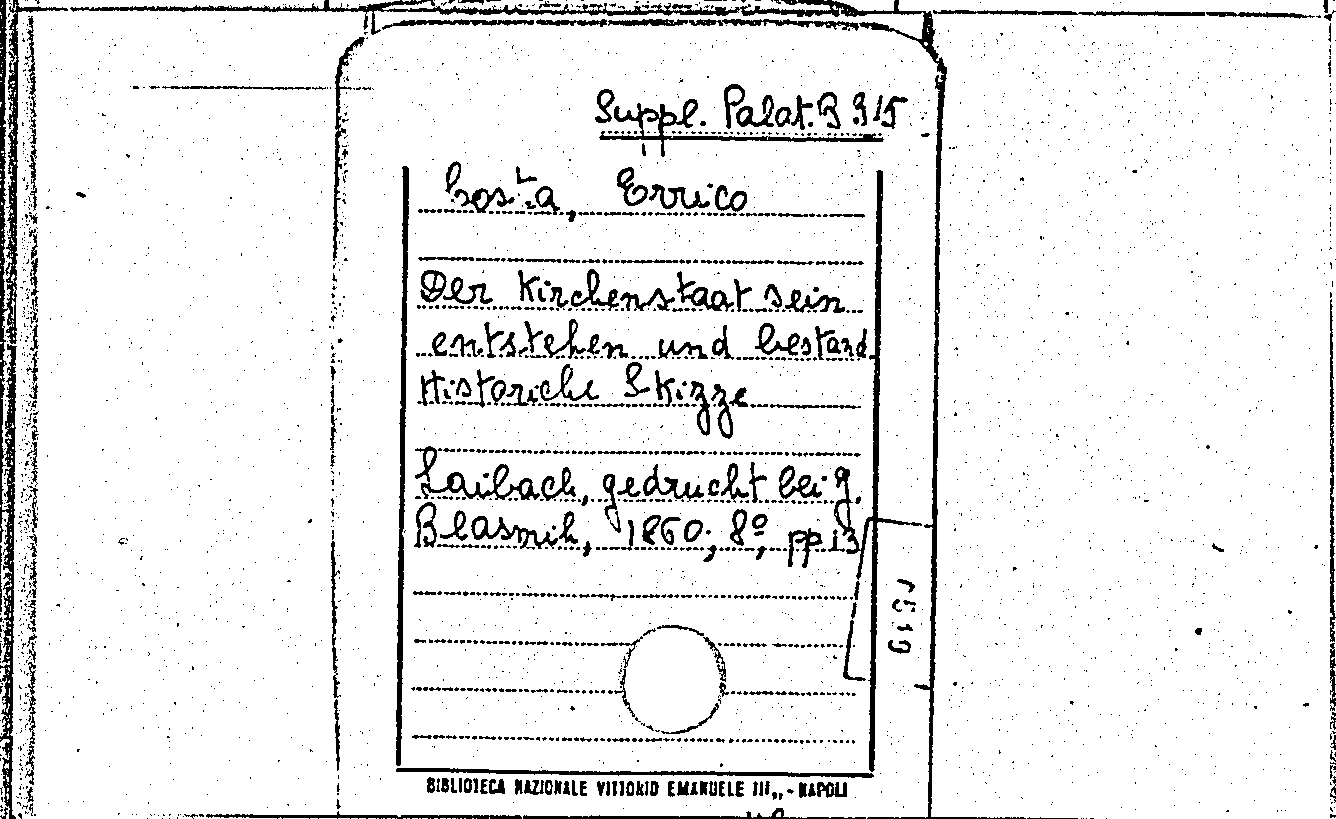 Suppl. Palat. B 315
Costa, Errico
Der Kirchenstaat sein
entstehen und bestand
Historiche Skizze
Laibach, gedrucht bei J.
Blasnik, 1860; 8º, pp 13
BIBLIOTECA NAZIONALE VITTORIO EMANUELE III,, - NAPOLI